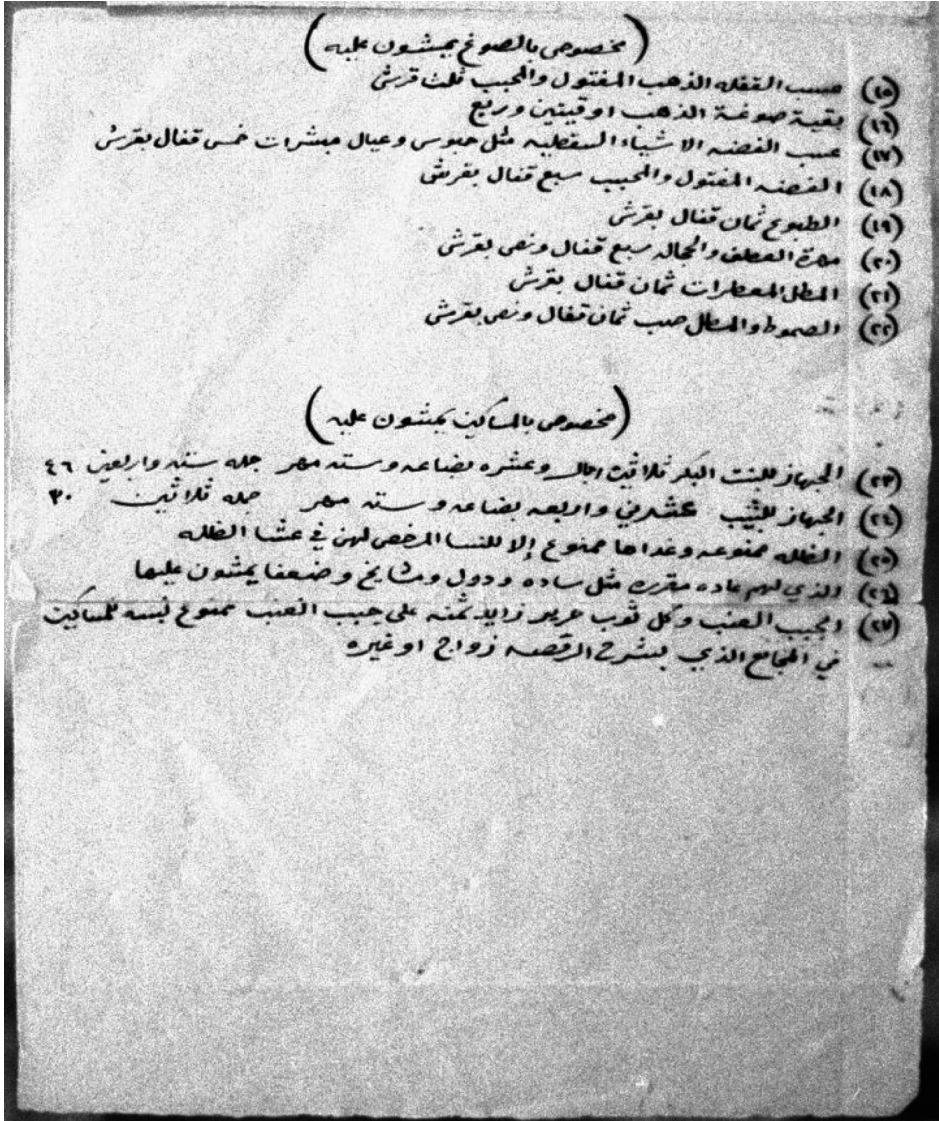 (مخصوص بالصوغ يمشون عليه)
(١٥) حسب القفله الذهب المفتول والمحبب ثلث قرش
(١٦) بقية صوغة الذهب اوقيتين وربع
(١٧) حسب الفضه الاشياء السقطيه مثل حبوس وعيال مبشرات خمس قفال بقرش
(١٨) الفضه المفتول والمحبب سبع قفال بقرش
(١٩) الطبوع ثمان قفال بقرش
(٢٠) مهرة العطف والحجاله سبع قفال ونص بقرش
(٢١) المطل المعطرات ثمان قفال بقرش
(٢٢) الصموط والمطال صب ثمان قفال ونص بقرش
(مخصوص بالمساكين يمشون عليه)
(٢٣) الجهاز للبنت البكر ثلاثين ريال وعشره بضاعه وسته مهر جمله سته واربعين ٤٦
(٢٤) الجهاز للثيب عشرين واربعه بضاعه وسته مهر جمله ثلاثين ٣٠
(٢٥) الظله ممنوعه وغداها ممنوع إلا للنسا المرخص لهن في عشا الظله
(٢٦) الذي لهم عاده مقرره مثل ساده ودول ومشايخ وضعفا يمشون عليها
(٢٧) الجبب العنب وكل ثوب حرير زايد ثمنه على جبب العنب ممنوع لبسه للمساكين
في المجامع الذي بشرح الرقصه زواج او غيره